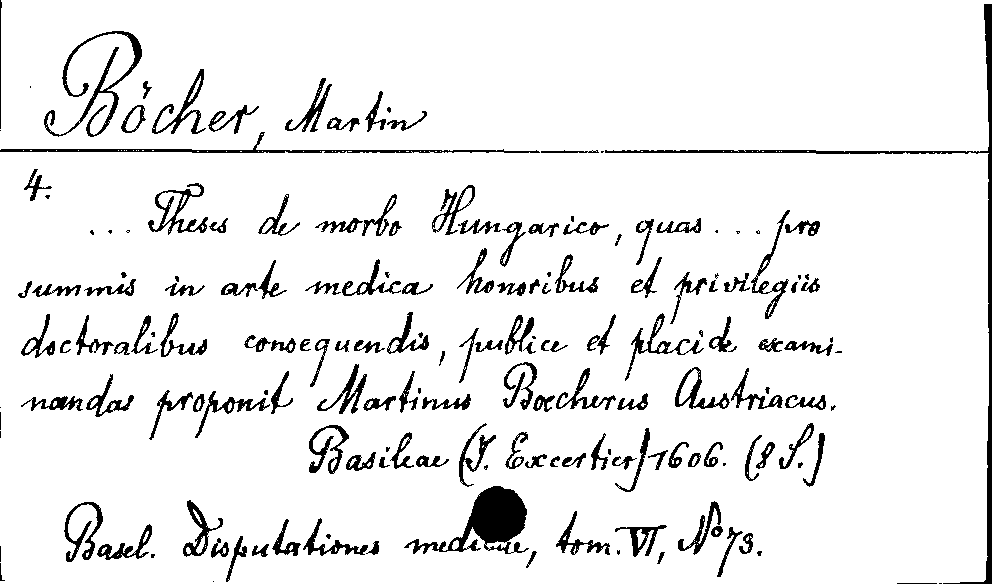 Böcher, Martin
4.
... Theses de morbo Hungarico, quas ... pro
summis in arte medica honoribus et privilegiis
doctoralibus consequendis, publice et placide exami-
nandas proponit Martinus Boecherus Austriacus.
Basileae (J. Excertier) 1606. (8 S.)
Basel. Disputationes medicae, tom. VI, No 73.